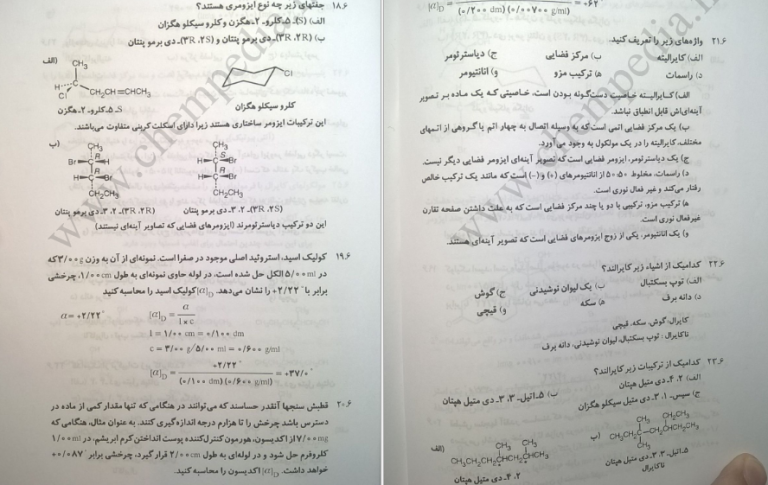 ۱۸.۶ جفتهای زیر چه نوع ایزومری هستند؟
الف) (S)ـ۵ـکلرو-۲ـهگزن و کلرو سیکلو هگزان
ب) (۳R ،۲R)ـ دی برمو پنتان و (۳R ،۲S)ـ دی برمو پنتان
الف)
CH₃
H
C
Cl
CH₂CH=CHCH₃
Cl
Sـ۵ـکلرو-۲ـهگزن
کلرو سیکلو هگزان
این ترکیبات ایزومر ساختاری هستند زیرا دارای اسکلت کربنی متفاوت می‌باشند.
ب)
CH₃
CH₃
Br C H
H C Br
H C Br
H C Br
CH₂CH₃
CH₂CH₃
(۳R ،۲R)ـ۲، ۳ـ دی برمو پنتان
(۳R ،۲S)ـ۲، ۳ـ دی برمو پنتان
این دو ترکیب دیاسترئومرند (ایزومرهای فضایی که تصاویر آینه‌ای نیستند)
۱۹.۶ کولیک اسید، استروئید اصلی موجود در صفرا است. نمونه‌ای از آن به وزن ۳/۰۰ g که
در ۵/۰۰ ml الکل حل شده است، در لوله حاوی نمونه‌ای به طول ۱/۰۰ cm، چرخشی
برابر با °۲/۲۲+ را نشان می‌دهد. [α]D کولیک اسید را محاسبه کنید
α = +۲/۲۲°
[α]D = α / l × c
l = ۱/۰۰ cm = ۰/۱۰۰ dm
c = ۳/۰۰ g/۵/۰۰ ml = ۰/۶۰۰ g/ml
[α]D = +۲/۲۲° / (۰/۱۰۰ dm) (۰/۶۰۰ g/ml) = +۳۷/۰°
۲۰.۶ قطبش سنجها آنقدر حساسند که می‌توانند در هنگامی که تنها مقدار کمی از ماده در
دسترس باشد چرخش را تا هزارم درجه اندازه‌گیری کنند. به عنوان مثال، هنگامی که
۷/۰۰ mg از اکدیسون، هورمون کنترل‌کننده پوست انداختن کرم ابریشم، در ۱/۰۰ ml
کلروفرم حل شود و در لوله‌ای به طول ۲/۰۰ cm قرار گیرد، چرخشی برابر °۰/۰۸۷+
خواهد داشت. [α]D اکدیسون را محاسبه کنید.
[α]D = (۰/۲۰۰ dm) (۰/۰۰۷۰۰ g/ml) = +۶۲°
۲۱.۶ واژه‌های زیر را تعریف کنید.
الف) کایرالیته ب) مرکز فضایی ج) دیاسترئومر
د) راسمات ه) ترکیب مزو و) انانتیومر
الف) کایرالیته خاصیت دست‌گونه بودن است، خاصیتی که یک ماده بر تصویر
آینه‌ای‌اش قابل انطباق نباشد.
ب) یک مرکز فضایی اتمی است که به وسیله اتصال به چهار اتم یا گروهی از اتمهای
مختلف، کایرالیته را در یک مولکول به وجود می‌آورد.
ج) یک دیاسترئومر، ایزومر فضایی است که تصویر آینه‌ای ایزومر فضایی دیگر نیست.
د) راسمات، مخلوط ۵۰:۵۰ از انانتیومرهای (+) و (−) است که مانند یک ترکیب خالص
رفتار می‌کند و غیر فعال نوری است.
ه) ترکیب مزو، ترکیبی با دو یا چند مرکز فضایی است که به علت داشتن صفحه تقارن
غیرفعال نوری است.
و) یک انانتیومر، یکی از زوج ایزومرهای فضایی است که تصویر آینه‌ای هستند.
۲۲.۶ کدامیک از اشیاء زیر کایرالند؟
الف) توپ بسکتبال ب) یک لیوان نوشیدنی ج) گوش
د) دانه برف ه) سکه و) قیچی
کایرال: گوش، سکه، قیچی
ناکایرال: توپ بسکتبال، لیوان نوشیدنی، دانه برف
۲۳.۶ کدامیک از ترکیبات زیر کایرالند؟
الف) ۲، ۴ـ دی متیل هپتان ب) ۵ـ اتیل ـ۳، ۳ـ دی متیل هپتان
ج) سیس ـ۱، ۳ـ دی متیل سیکلو هگزان
الف)
CH₃ CH₃
CH₃CH₂CH₂CHCH₂CHCH₃
۲، ۴ـ دی متیل هپتان
ب)
CH₃ CH₂CH₃
CH₃CH₂C—CH₂CHCH₂CH₃
CH₃
۵ـ اتیل ـ۳، ۳ـ دی متیل هپتان
ناکایرال
www.chempedia.ir